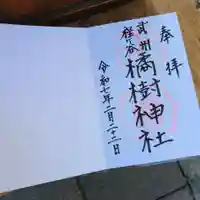 奉拝
武州
経ヶ谷
橘樹神社
令和七年二月二十二日